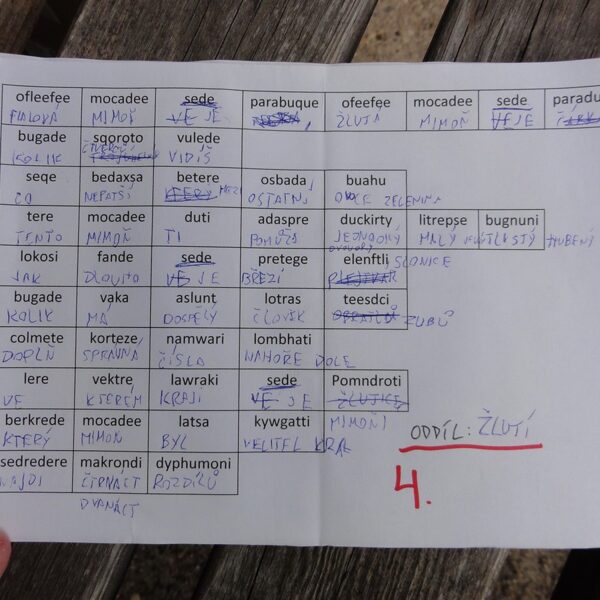 ofleefęe mocadee sede parabuque ofeefęe mocadee sede paradu
FIALOVÁ MIMOŇ VE JE ŽLUTÁ MIMOŇ VE JE
bugade sqoroto vulede
KOLIK VIDÍŠ
seqe bedaxsa betere osbada buahu
CO NEPATŘÍ KTERÝ MEZI OSTATNÍ OVOCE ZELENINA
tere mocadee duti adaspre duckirty litrepse bugnuni
TENTO MIMOŇ TI POMŮŽE JEDNOOKÝ MALÝ TLUSTÝ HUBENÝ
lokosi fande sede pretege elenftli SLONICE
JAK DLOUHO VE JE BŘEZÍ
bugade vąka aslunt lotras teesdci
KOLIK MÁ DOSPĚLÝ ČLOVĚK ZUBŮ
colmete korteze namwari lombhati
DOPLŇ SPRÁVNÁ ČÍSLA NAHOŘE DOLE
lere vektre lawraki sede Pomndroti
VE KTERÉM KRAJI VE JE ŽLUTICE
berkrede mocadee latsa kywgatti MIMONI
KTERÝ MIMOŇ BYL VELITEL KRÁL
ODDÍL: ŽLUTÍ
sedredere makrondi dyphumoni
NAJDI ČTRNÁCT ROZDÍLŮ
4.
DVANÁCT